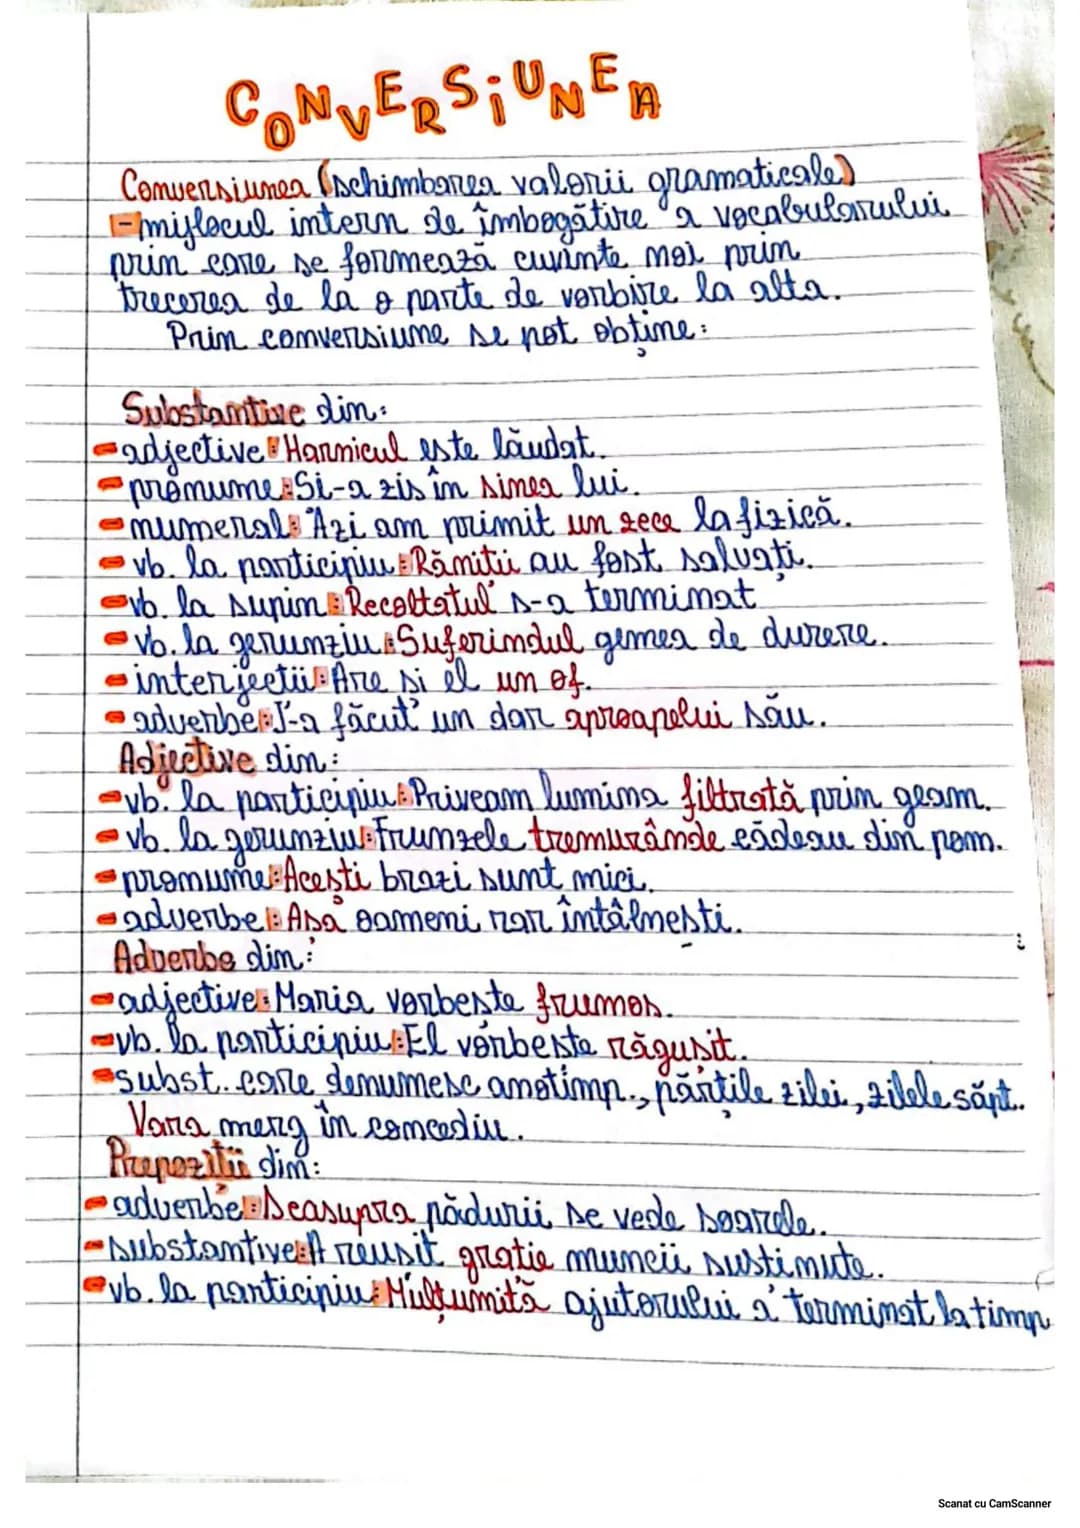 CONVERSiUNEA
Conversiunea (schimbarea valorii gramaticale)
-mijlocul intern de îmbogățire a vocabularului
prin care se formează cuvinte noi prin
trecerea de la o parte de vorbire la alta.
Prin conversiune se pot obține:
Substantive din:
-adjective: Harnicul este lăudat.
-pronume: Si-a zis în sinea lui.
-numeral: Azi am primit un zece la fizică.
-vb. la participiu: Răniții au fost salvați.
-vb. la supin: Recoltatul s-a terminat
-vb. la gerunziu: Suferindul gemea de durere.
-interjecții: Are și el un of.
-adverbe: I-a făcut un dar aproapelui său.
Adjective din:
-vb. la participiu: Priveam lumina filtrată prin geam.
-vb. la gerunziu: Frunzele tremurânde cădeau din pom.
-pronume: Acești brazi sunt mici.
-adverbe: Așa oameni rar întâlnești.
Adverbe din:
-adjective: Maria vorbește frumos.
-vb. la participiu: El vorbește răgușit.
-subst. care denumesc anotimp., părțile zilei, zilele săpt.
Vara merg în concediu.
Prepoziții din:
-adverbe: Deasupra pădurii se vede soarele.
-substantive: A reușit grație muncii susținute.
-vb. la participiu: Mulțumită ajutorului a terminat la timp
Scanat cu CamScanner